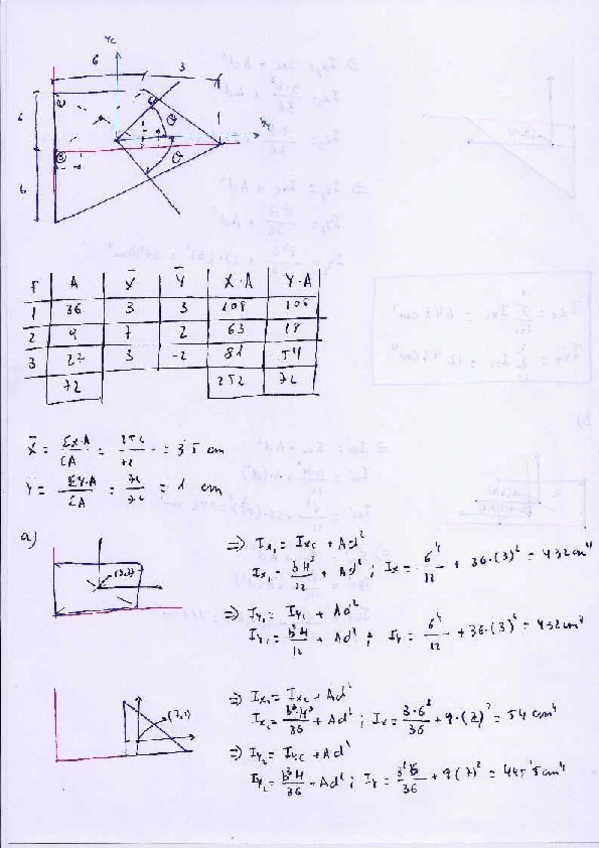 Yc
6 3
6
6
① ② ③
F A X̄ Ȳ X·A Y·A
1 36 3 3 108 108
2 9 7 2 63 18
3 27 3 -2 81 54
72 252 72
X̄ = ΣX·A / ΣA = 252 / 72 = 3'5 cm
Y = ΣY·A / ΣA = 72 / 72 = 1 cm
a)
(3,3)
⇒ Ix₁ = Ixc + Ad²
Ix₁ = bH³/12 + Ad² ; Ix = 6⁴/12 + 36·(3)² = 432 cm⁴
⇒ Iy₁ = Iyc + Ad²
Iy₁ = b³H/12 + Ad² ; Iy = 6⁴/12 + 36·(3)² = 432 cm⁴
(7,2)
⇒ Ix₂ = Ixc + Ad²
Ix₂ = b·H³/36 + Ad² ; Ix = 3·6³/36 + 9·(2)² = 54 cm⁴
⇒ Iy₂ = Iyc + Ad²
Iy₂ = b³H/36 + Ad² ; Iy = 3³·6/36 + 9(7)² = 445'5 cm⁴